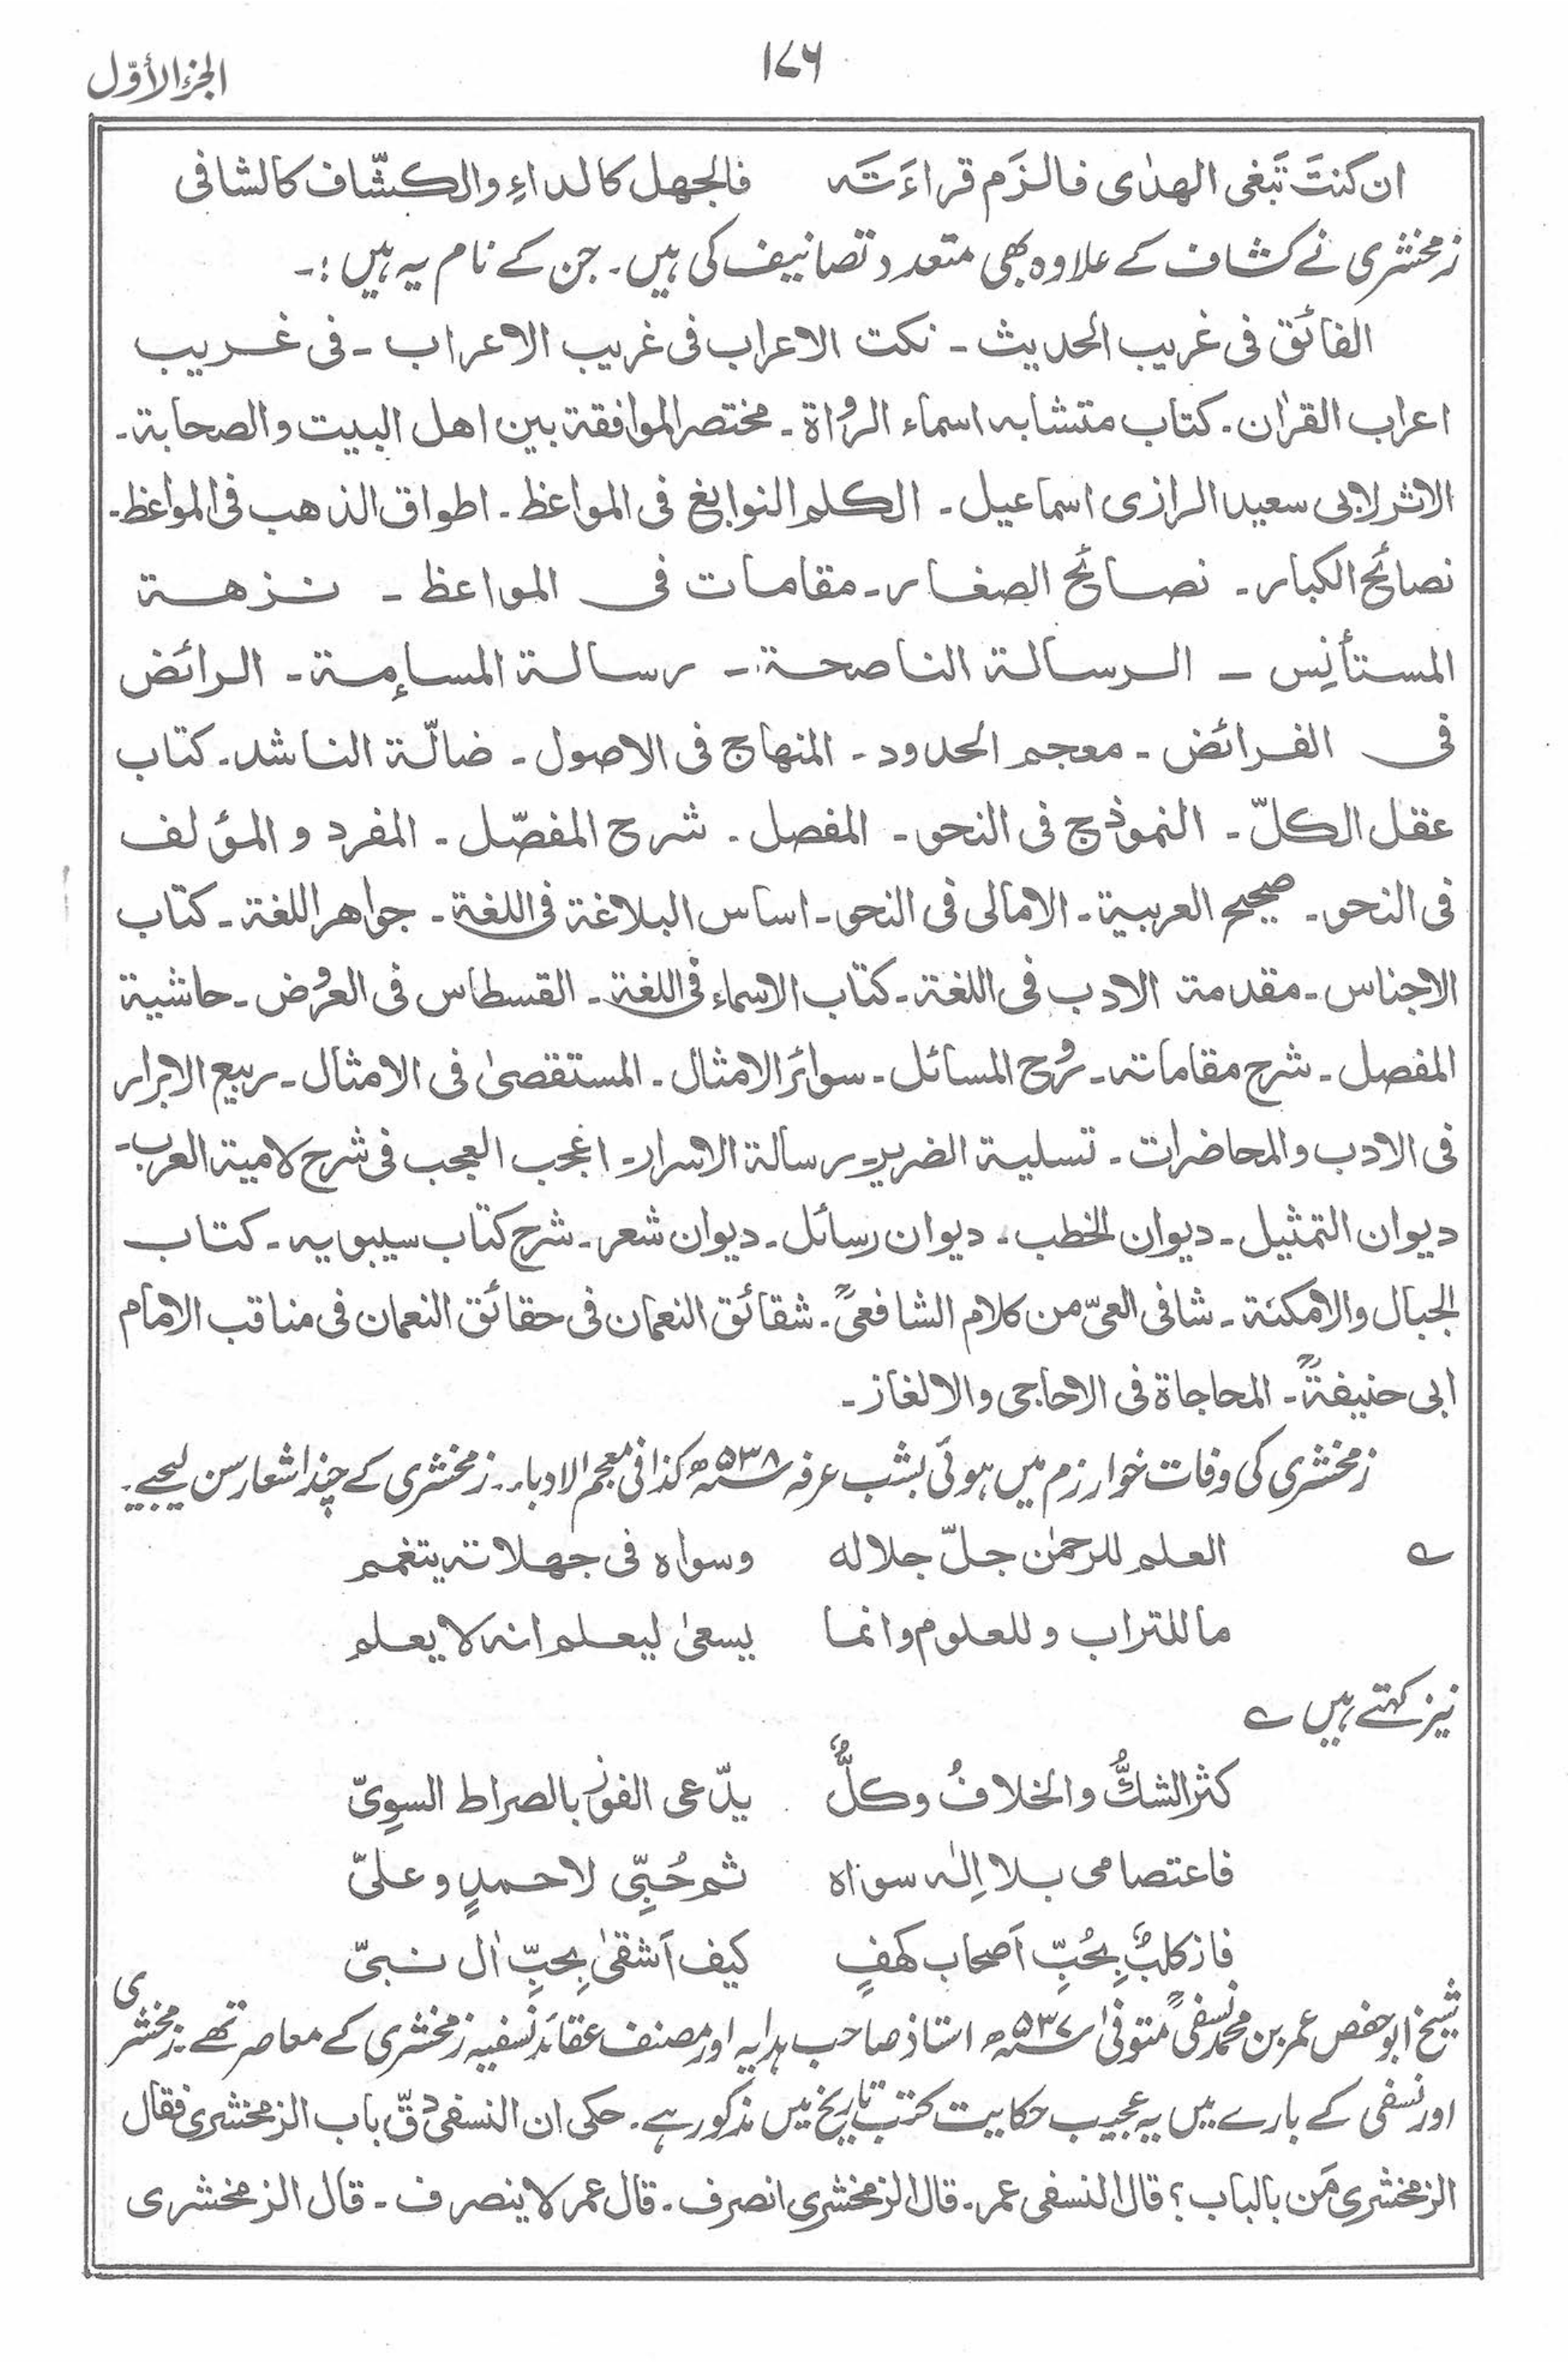 الجزء الأوّل
۱۷۶
ان كنتَ تَبغى الهدٰى فالزَم قراءَتَہ فالجهل كالداءِ والكشّاف كالشافى
زمخشری نے کشاف کے علاوہ بھی متعدد تصانیف کی ہیں۔ جن کے نام یہ ہیں :۔
الفائق فى غريب الحديث ۔ نكت الاعراب فى غريب الاعراب ۔ فى غريب
اعراب القراٰن ۔ كتاب متشابہ اسماء الرُّواة ۔ مختصر الموافقة بين اهل البيت والصحابة ۔
الاثر لابى سعيد الرازى اسماعيل ۔ الكلم النوابغ فى المواعظ ۔ اطواق الذهب فى المواعظ ۔
نصائح الكبار ۔ نصائح الصغار ۔ مقامات فى المواعظ ۔ نزهة
المستأنِس ۔ الرسالة الناصحة ۔ رسالة المسامة ۔ الرائض
فى الفرائض ۔ معجم الحدود ۔ المنهاج فى الاصول ۔ ضالّة الناشد ۔ كتاب
عقل الكلّ ۔ النموذج فى النحو ۔ المفصل ۔ شرح المفصّل ۔ المفرد و المؤلف
فى النحو ۔ صحيح العربية ۔ الامالى فى النحو ۔ اساس البلاغة فى اللغة ۔ جواهر اللغة ۔ كتاب
الاجناس ۔ مقدمة الادب فى اللغة ۔ كتاب الاسماء فى اللغة ۔ القسطاس فى العرُوض ۔ حاشية
المفصل ۔ شرح مقاماتہ ۔ رُوح المسائل ۔ سوائر الامثال ۔ المستقصىٰ فى الامثال ۔ ربيع الابرار
فى الادب والمحاضرات ۔ تسلية الضرير ۔ رسالة الاسرار ۔ اعجب العجب فى شرح لامية العرب ۔
ديوان التمثيل ۔ ديوان الخطب ۔ ديوان رسائل ۔ ديوان شعر ۔ شرح كتاب سيبويہ ۔ كتاب
الجبال والامكنة ۔ شافى العىّ من كلام الشافعىؒ ۔ شقائق النعمان فى حقائق النعمان فى مناقب الامام
ابى حنيفةؒ ۔ المحاجاة فى الاحاجى والالغاز ۔
زمخشری کی وفات خوارزم میں ہوئی بشب عرفہ ۵۳۸ھ کذا فی معجم الادباء ۔ زمخشری کے چند اشعار سن لیجیے ۔
؎ العلم للرحمٰن جلّ جلاله وسواہ فى جهلاتہ يتغمم
ما للتراب و للعلوم وانما يسعىٰ ليعلم انہ لا يعلم
نیز کہتے ہیں ؎
كثر الشكُّ والخلافُ وكلٌّ يدّعى الفوز بالصراط السوِىّ
فاعتصامى بلا اِلٰہ سواہ ثم حُبِّى لاحمدٍ و علىّ
فاز كلبٌ بِحُبِّ اَصحاب كهفٍ كيف اَشقىٰ بِحبِّ اٰل نبىّ
شیخ ابو حفص عمر بن محمد نسفیؒ متوفیٰ ۵۳۷ھ استاذ صاحب ہدایہ اور مصنف عقائد نسفیہ زمخشری کے معاصر تھے ۔ زمخشری
اور نسفی کے بارے میں یہ عجیب حکایت کتب تاریخ میں مذکور ہے ۔ حكى ان النسفى دقّ باب الزمخشرى فقال
الزمخشرى مَن بالباب؟ قال النسفى عمر ۔ قال الزمخشرى انصرف ۔ قال عمر لا ينصرف ۔ قال الزمخشرى